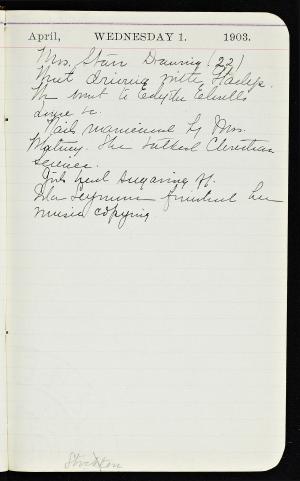 April, WEDNESDAY 1. 1903.
Mrs. Starr Downing (22)
Went driving with Gladys.
We went to Edythe
dime &c.
Nails manicured by Mrs.
She talked Christian
science.
Girls had sugaring off.
finished her
music copying
Stockton